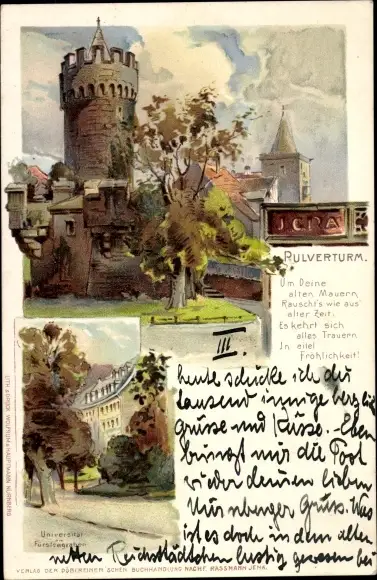 JENA
PULVERTURM.
Um Deine
alten Mauern,
Rauscht's wie aus
alter Zeit:
Es kehrt sich
alles Trauern
In eitel
Fröhlichkeit!
III.
heute schicke ich dir
tausend innige herzliche
Grüsse und Küsse. Eben
bringt mir die Post
wieder deinen lieben
Nürnberger Gruss. Was
ist es doch in dem alten
netten Reichsstädtchen lustig gewesen bei
Universität
Fürstengraben
LITH. & DRUCK WOLFRUM & HAUPTMANN, NÜRNBERG
VERLAG DER DÖBEREINER'SCHEN BUCHHANDLUNG NACHF. RASSMANN JENA.